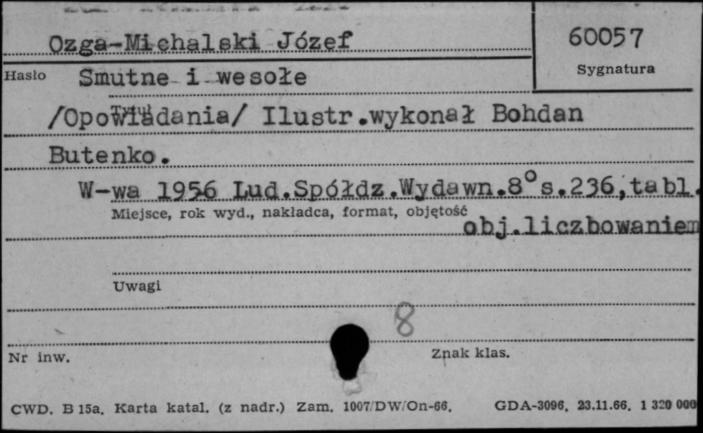 Ozga-Michalski Józef
60057
Hasło
Sygnatura
Smutne i wesołe
/Opowiadania/ Ilustr.wykonał Bohdan
Butenko.
W-wa 1956 Lud.Spółdz.Wydawn.8° s.236,tabl.
Miejsce, rok wyd., nakładca, format, objętość
obj.liczbowaniem
Uwagi
8
Nr inw.
Znak klas.
CWD. B 15a. Karta katal. (z nadr.) Zam. 1007/DW/On-66. GDA-3096, 23.11.66. 1 320 000